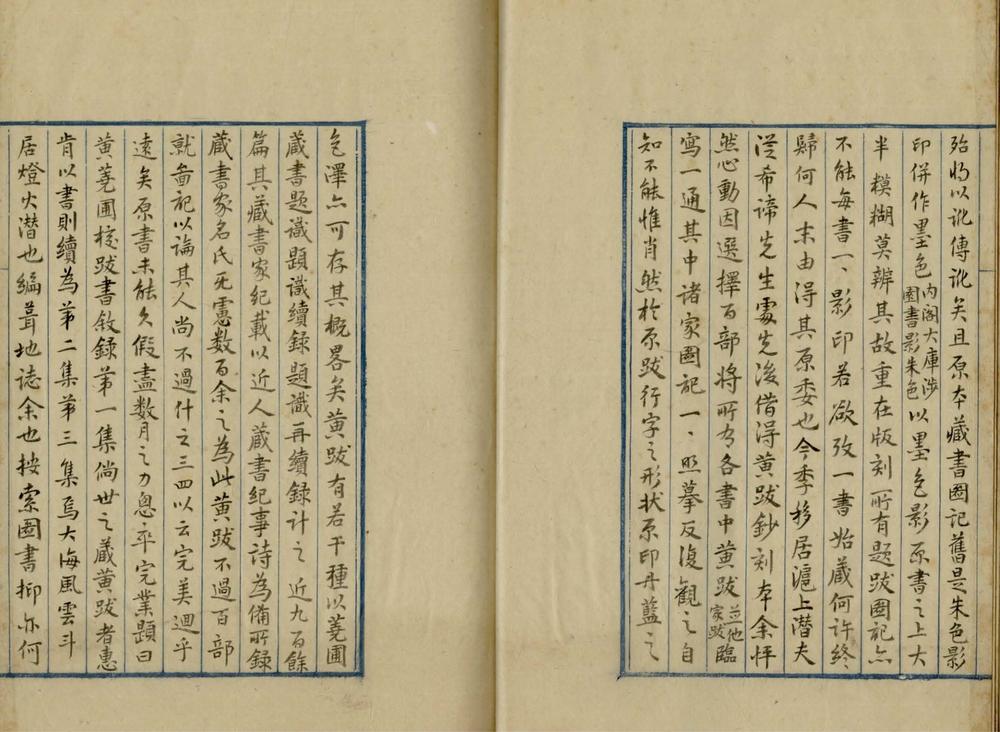 殆將以訛傳訛矣且原本藏書圖記舊是朱色影
印併作墨色内阁大庫涉圖書影朱色以墨色影原書之上大
半糢糊莫辨其故重在版刻所有題跋圖記亦
不能每書一、影印若欲攷一書始藏何許終
歸何人末由得其原委也今季移居滬上潜夫
從希諦先生處先後借得黄跋鈔刻本余怦
然心動因選擇百部將所有各書中黄跋並他家跋臨
寫一通其中諸家圖記一、照摹反復觀之自
知不能惟肖然於原跋行字之形状原印丹藍之
色澤亦可存其概畧矣黄跋有若干種以蕘圃
藏書題識題識續録題識再續録計之近九百餘
篇其藏書家紀載以近人藏書紀事詩為備所録
藏書家名氏死憲数百余之為此黄跋不過百部
就啚記以論其人尚不過什之三四以云完美迴乎
遠矣原書未能久假盡数月之力息卒完業題曰
黄蕘圃校跋書敘録第一集倘世之藏黄跋者惠
肯以書則續為第二集第三集焉大海風雲斗
居燈火潛也編葺地誌余也按索圖書抑亦何